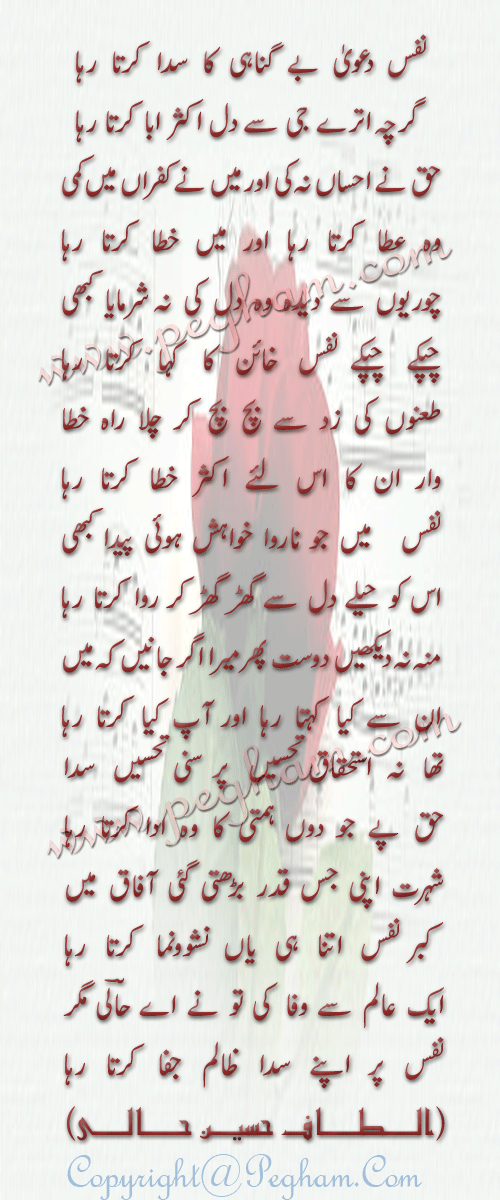 نفس دعویٰ بے گناہی کا سدا کرتا رہا
گرچہ اترے جی سے دل اکثر ابا کرتا رہا
حق نے احساں نہ کی اور میں نے کفراں میں کمی
وہ عطا کرتا رہا اور میں خطا کرتا رہا
چوریوں سے دیدہ وہ دل کی نہ شرمایا کبھی
چپکے چپکے نفس خائن کا کہا کرتا رہا
طعنوں کی زد سے بچ بچ کر چلا راہ خطا
وار ان کا اس لئے اکثر خطا کرتا رہا
نفس میں جو ناروا خواہش ہوئی پیدا کبھی
اس کو حیلے دل سے گھڑ گھڑ کر روا کرتا رہا
منہ نہ دیکھیں دوست پھر میرا اگر جانیں کہ میں
ان سے کیا کہتا رہا اور آپ کیا کرتا رہا
تھا نہ استحقاق تحسیں پر سنی تحسیں سدا
حق ہے جو دوں ہمتی کا وہ ادا کرتا رہا
شہرت اپنی جس قدر بڑھتی گئی آفاق میں
کبر نفس اتنا ہی یاں نشوونما کرتا رہا
ایک عالم سے وفا کی تو نے اے حالی مگر
نفس پر اپنے سدا ظالم جفا کرتا رہا
(الطاف حسین حالی)
Copyright@Pegham.Com
www.pegham.com
www.pegham.com